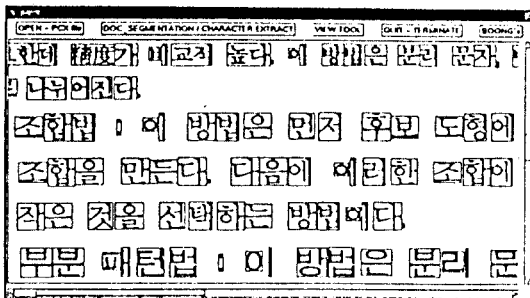 OPEN - PCX file DOC_SEGMENTATION / CHARACTER EXTRACT VIEW TOOL QUIT - TERMINATE BOONG's
한데 精度가 비교적 높다. 이 방법은 분리 문자,
나누어진다.
조합법 : 이 방법은 먼저 후보 도형이
조합을 만든다. 다음이 이러한 조합이
작은 것을 선택하는 방법이다.
부분 패턴법 : 이 방법은 분리 문